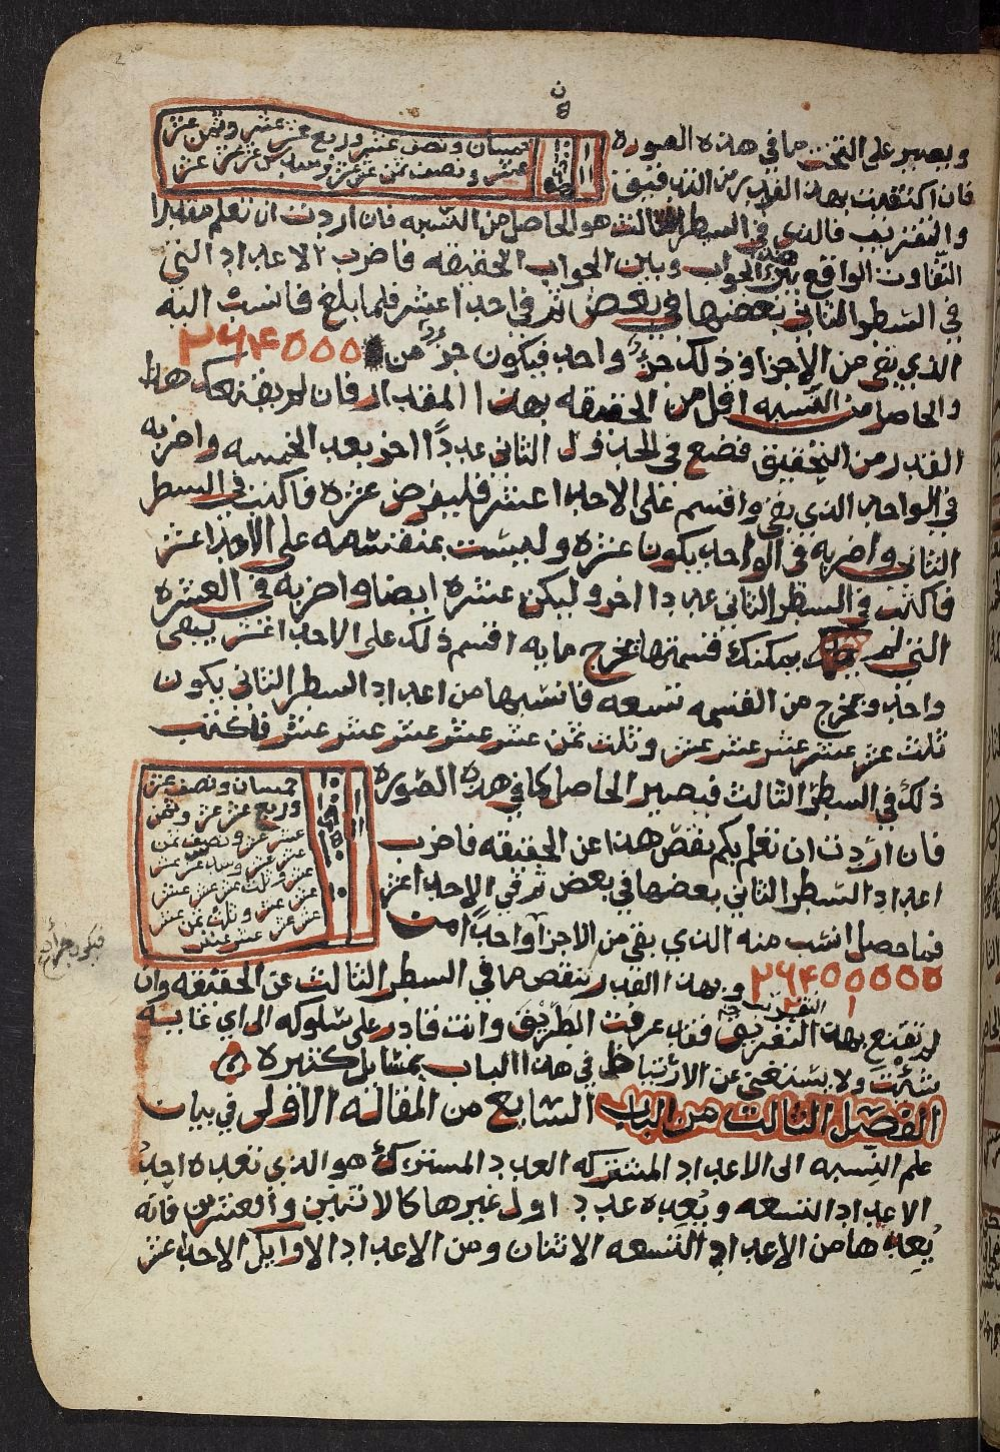 ويصير على التخت ما في هذه الصورة
خمسان ونصف عشر وربع عشر عشر وثمن عشر
عشر ونصف ثمن عشر عشر وسدس عشر عشر عشر
فان اكتفيت بهذا القدر من التدقيق
والتقريب فالذي في السطر الثالث هو الحاصل من النسبه فان اردت ان تعلم مقدار
التفاوت الواقع بين هذا الجواب وبين الجواب الحقيقه فاضرب الاعداد التي
في السطر الثاني بعضها في بعض ثم في احد اعشر فلما بلغ فانسب اليه
الذي بقي من الاجزا وذلك جزء واحد فيكون جزءًا من ٢٦٤٠٠٠
والحاصل من النسبه اقل من الحقيقه بهذا المقدار فان لم يقنعك هذا
القدر من التحقيق فضع في الجدول الثاني عددًا اخر بعد الخمسه واضربه
في الواحد الذي بقي واقسم على الاحد اعشر فليفرض عشره فاكتب في السطر
الثاني واضربه في الواحد يكون عشره وليست بمنقسمه على الاحد اعشر
فاكتب في السطر الثاني عددا اخر وليكن عشره ايضا واضربه في العشره
التي لم يمكنك قسمتها يخرج مايه اقسم ذلك على الاحد اعشر يبقى
واحد ويخرج من القسمه تسعه فانسبها من اعداد السطر الثاني يكون
ثلث عشر عشر عشر عشر عشر وثلث ثمن عشر عشر عشر عشر عشر فاكتب
ذلك في السطر الثالث فيصير الحاصل كما في هذه الصورة
خمسان ونصف عشر
وربع عشر عشر وثمن
عشر عشر ونصف ثمن
عشر عشر وسدس عشر عشر
عشر وثلث عشر عشر عشر
عشر عشر وثلث ثمن عشر
عشر عشر عشر عشر
فان اردت ان تعلم بكم نقص هذا عن الحقيقه فاضرب
اعداد السطر الثاني بعضها في بعض ثم في الاحد اعشر
فما حصل انسب منه الذي بقي من الاجزا واحدًا من
فيكون جزأ
٢٦٤٠٠٠٠٠ وبهذا القدر ينقص ما في السطر الثالث عن الحقيقه وان
لم تقنع بهذا التقريب فقد عرفت الطريق وانت قادر على سلوكه الى اي غايه
شئت ولا يستغني عن الارتباط في هذا الباب بمسايل كثيره
الفصل الثالث من الباب السابع من المقالة الاولى في بيان
علم النسبه الى الاعداد المشتركه العدد المشترك هو الذي تعده احد
الاعداد التسعه ويعده عدد اول غيرها كالاثنين والعشرين فانه
يعدها من الاعداد التسعه الاثنان ومن الاعداد الاوايل الاحد عشر